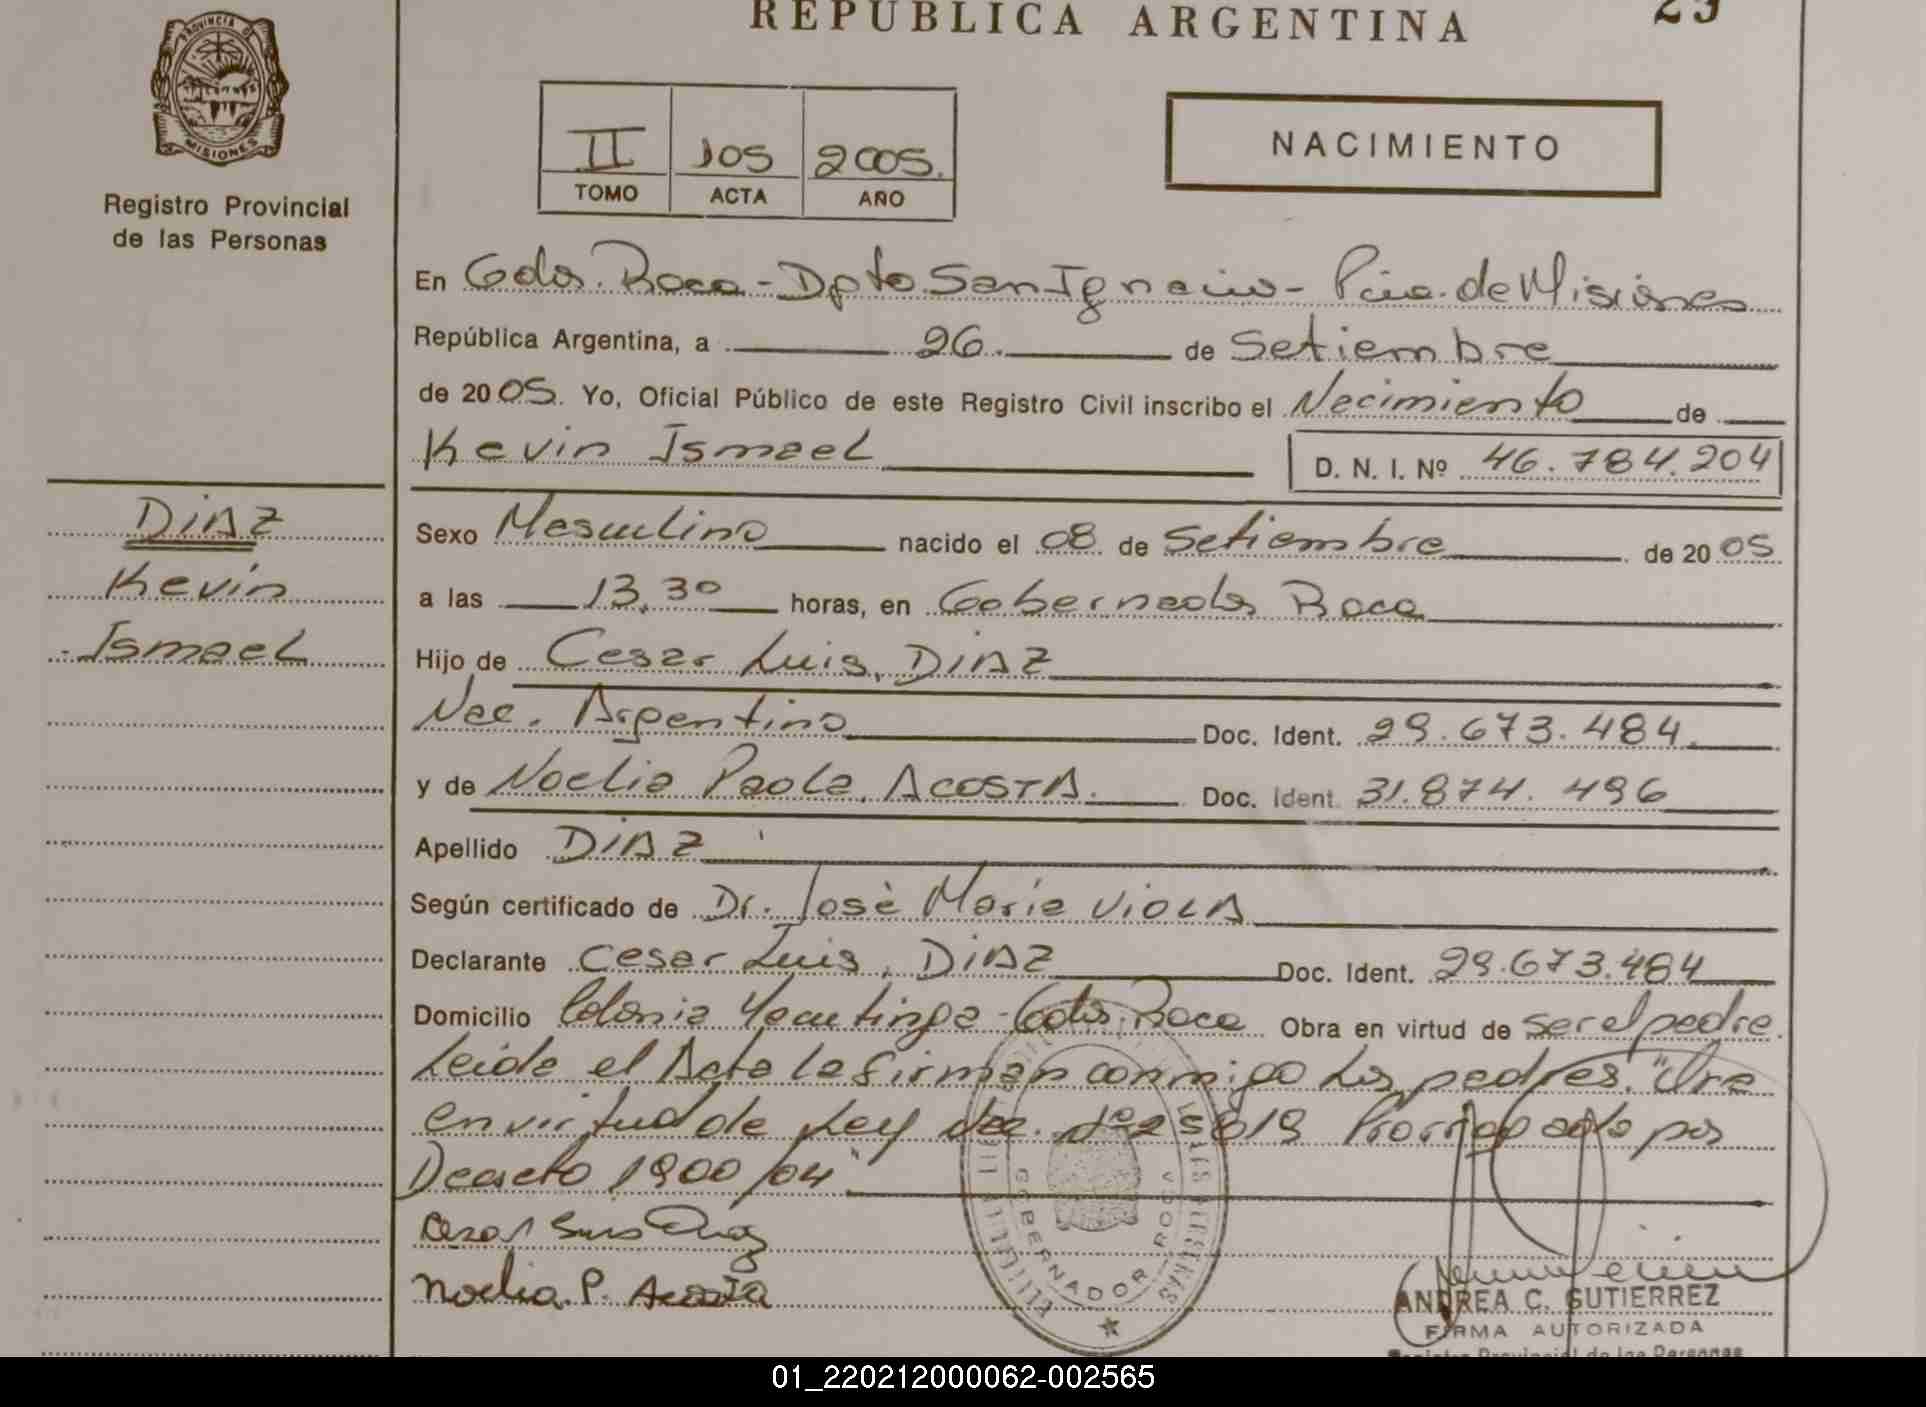 REPUBLICA ARGENTINA
PROVINCIA DE
MISIONES
Registro Provincial
de las Personas
II 105 2005.
TOMO ACTA AÑO
NACIMIENTO
En Gdor. Roca - Dpto San Ignacio - Pcia. de Misiones
República Argentina, a 26. de Setiembre
de 2005. Yo, Oficial Público de este Registro Civil inscribo el Nacimiento de
Kevin Ismael
D. N. I. Nº 46.784.204
DIAZ
Kevin
Ismael
Sexo Masculino nacido el 08 de Setiembre de 2005
a las 13,30 horas, en Gobernador Roca
Hijo de Cesar Luis, DIAZ
Nac. Argentino Doc. Ident. 29.673.484.
y de Noelia Paola, ACOSTA. Doc. Ident. 31.874.496
Apellido DIAZ
Según certificado de Dr. José María VIOLA
Declarante Cesar Luis, DIAZ Doc. Ident. 29.673.484
Domicilio Colonia Yacutinga - Gdor. Roca Obra en virtud de ser el padre.
Leída el Acta la firman conmigo los padres. "Ins
en virtud de Ley Nac. Nº 25819 Prorrogada por
Decreto 1900/04"
Cesar Luis Diaz
Noelia. P. Acosta
GOBERNADOR ROCA
ANDREA C. GUTIERREZ
FIRMA AUTORIZADA
Registro Provincial de las Personas
01_220212000062-002565